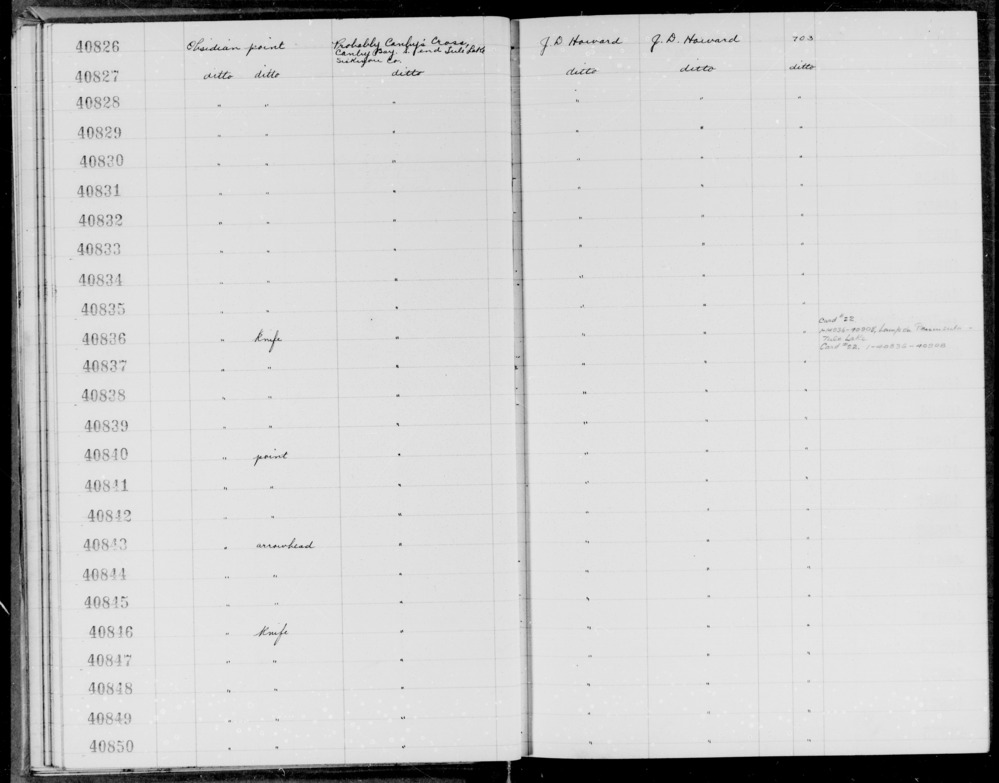 40826 Obsidian point Probably Canby's Cross, J. D Howard J. D. Howard 703
Canby Bay, S. end Tule Lake
Siskiyou Co.
40827 ditto ditto ditto ditto ditto ditto
40828 " " " " " "
40829 " " " " " "
40830 " " " " " "
40831 " " " " " "
40832 " " " " " "
40833 " " " " " "
40834 " " " " " "
40835 " " " " " "
Card #22
40836 " Knife " " " "
Tule Lake
Card #22,
40837 " " " " " "
40838 " " " " " "
40839 " " " " " "
40840 " point " " " "
40841 " " " " " "
40842 " " " " " "
40843 " arrowhead " " " "
40844 " " " " " "
40845 " " " " " "
40846 " Knife " " " "
40847 " " " " " "
40848 " " " " " "
40849 " " " " " "
40850 " " " " " "